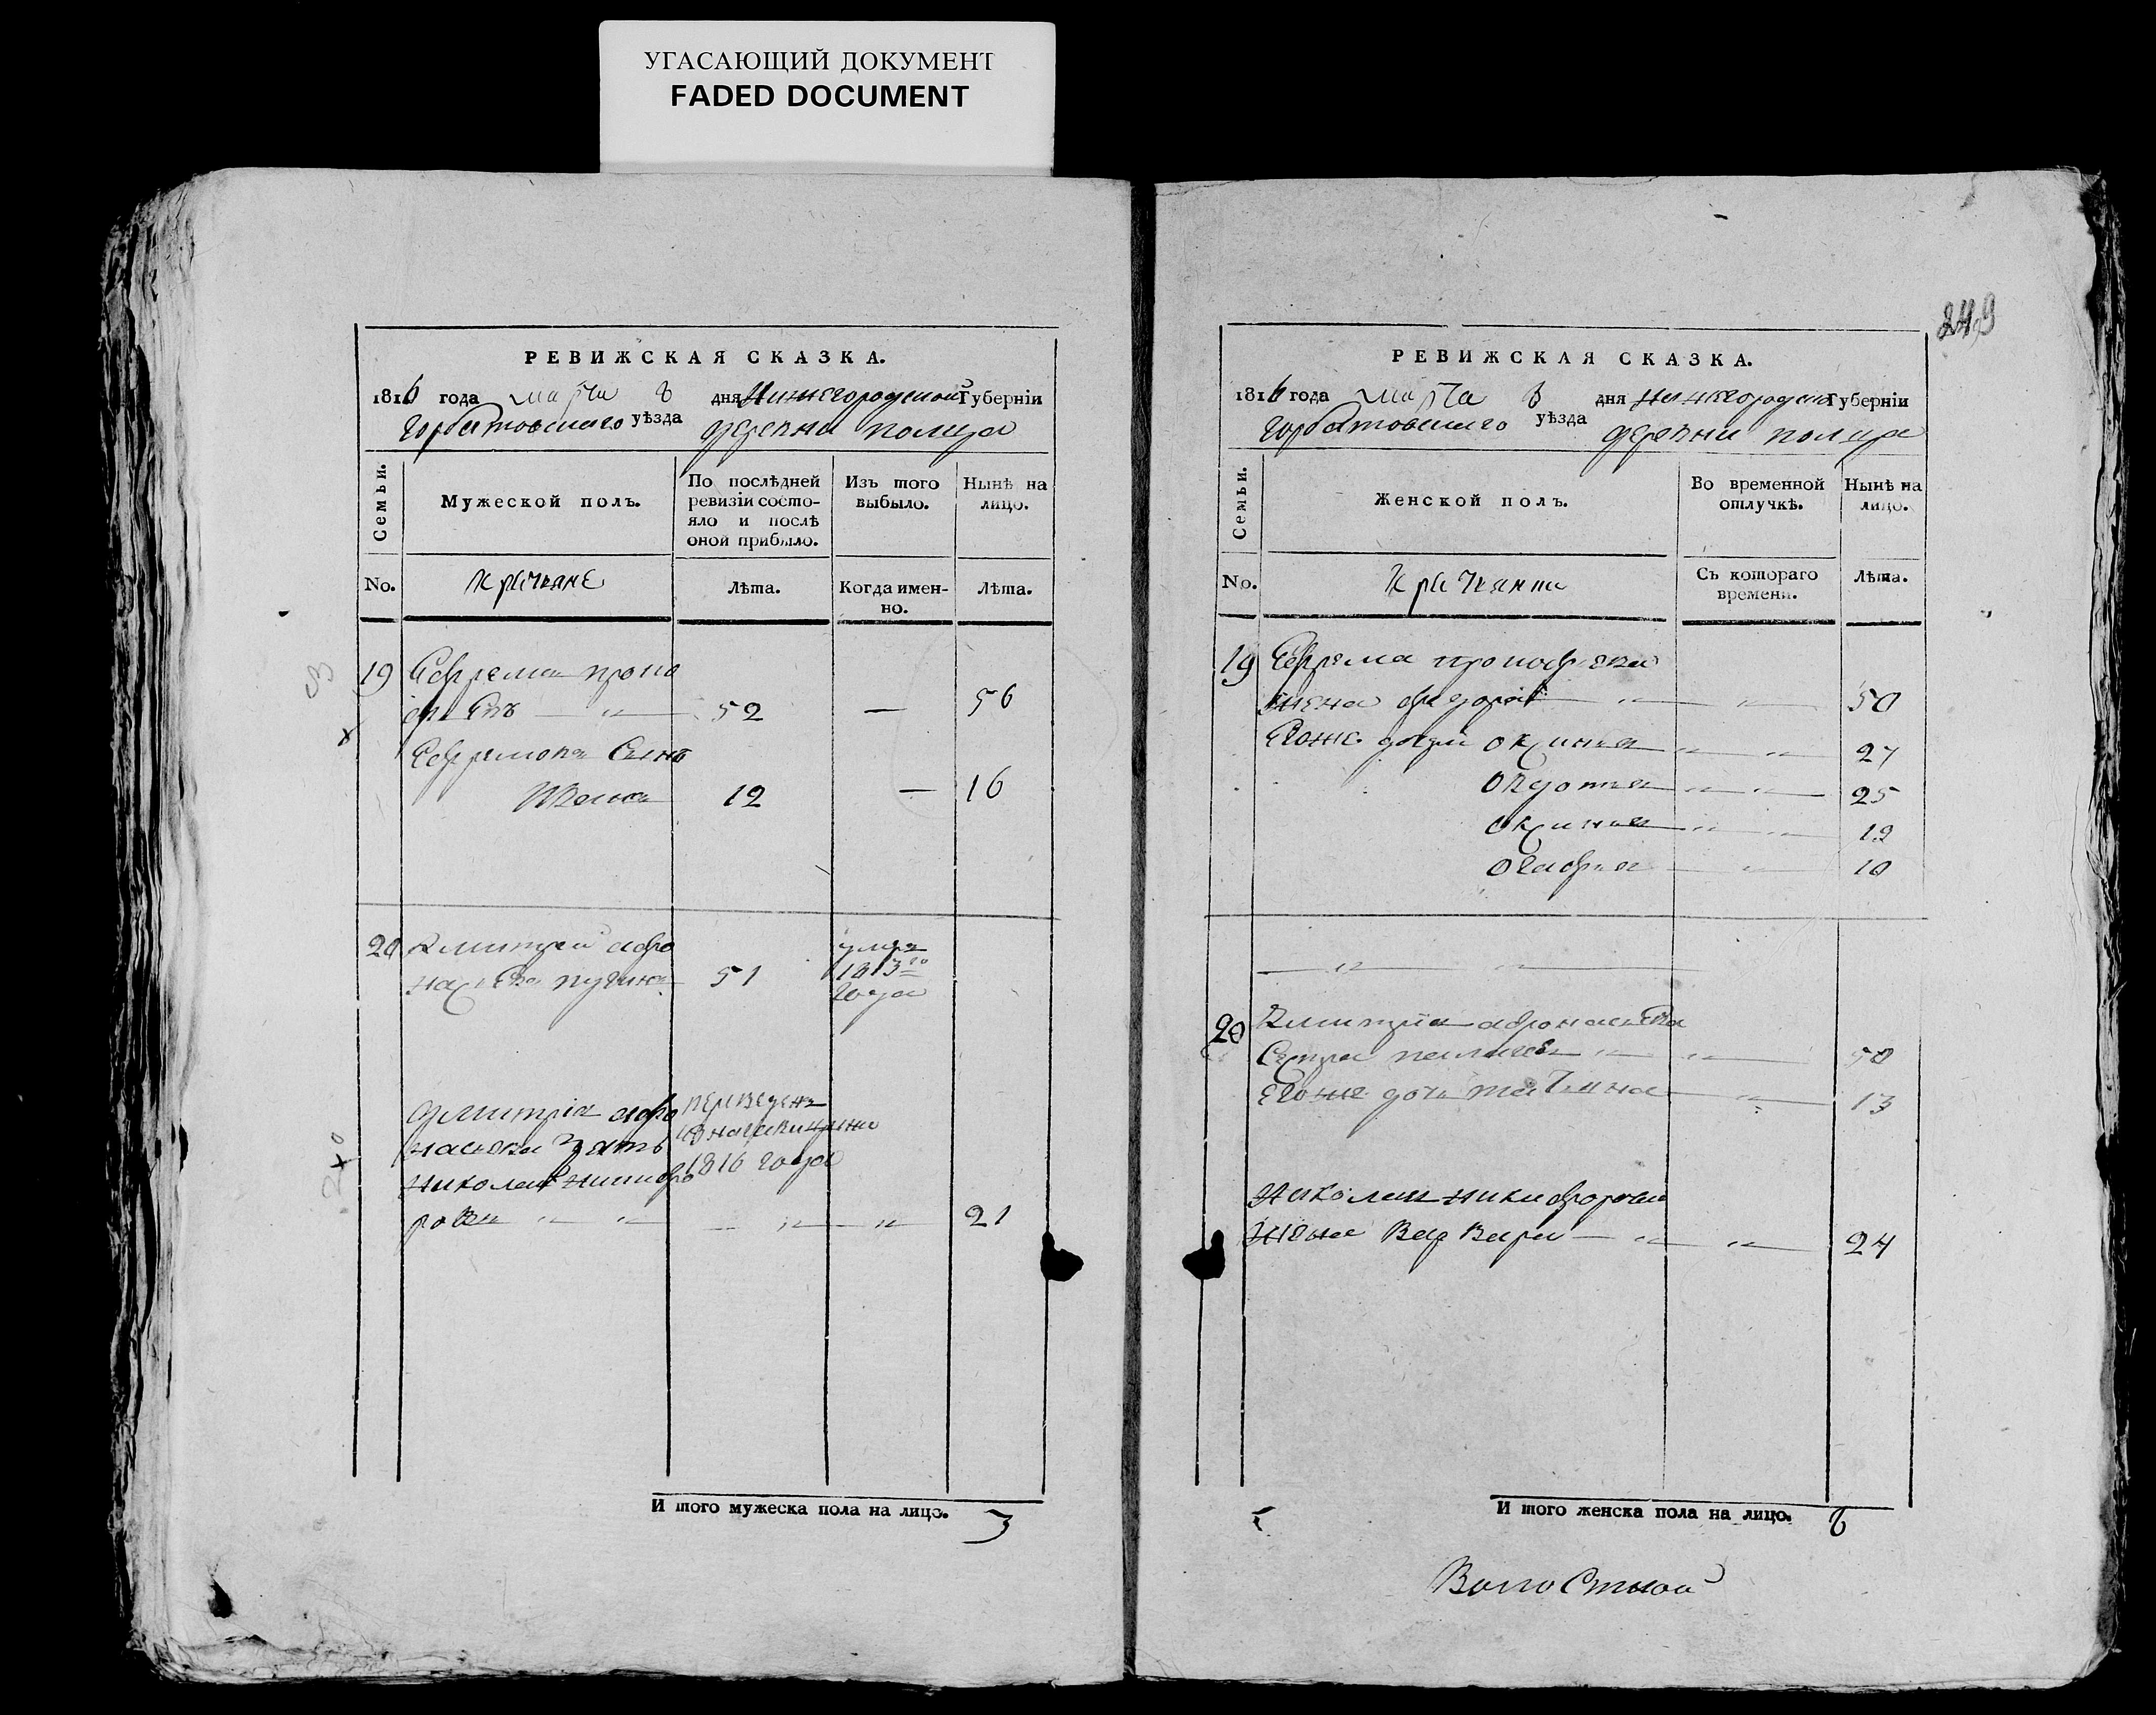 УГАСАЮЩИЙ ДОКУМЕНТ
FADED DOCUMENT
РЕВИЖСКАЯ СКАЗКА.
1816 года марта 8 дня Нижегородской Губерніи
Горбатовскаго уѣзда деревни
Семьи.
Мужеской полъ.
По послѣдней ревизіи состо-
яло и послѣ
оной прибыло.
Изъ того
выбыло.
Нынѣ на
лицо.
No.
Лѣта.
Когда имен-
но.
Лѣта.
19 Ефремъ
52 — 56
Ефремова Сынъ
12 — 16
20 Дмитрей афо
51
умре
1813го
года
Дмитрія афо
насьева зять
переведенъ
1816 года
николай никифо
ровъ 21
И того мужеска пола на лицо. 3
249
РЕВИЖСКАЯ СКАЗКА.
1816 года марта 8 дня Нижегородской Губерніи
Горбатовскаго уѣзда деревни
Семьи.
Женской полъ.
Во временной
отлучкѣ.
Нынѣ на
лицо.
No.
Съ котораго
времени.
Лѣта.
19 Ефрема прокофьева
жена федора 50
Егоже дочери оксинья 27
овдотья 25
оксинья 19
огафья 10
20 Дмитрія афонасьева
Сестра 50
Егоже дочь татьяна 13
Николая никифорова
жена Варвара 24
И того женска пола на лицо. 8
Волостной